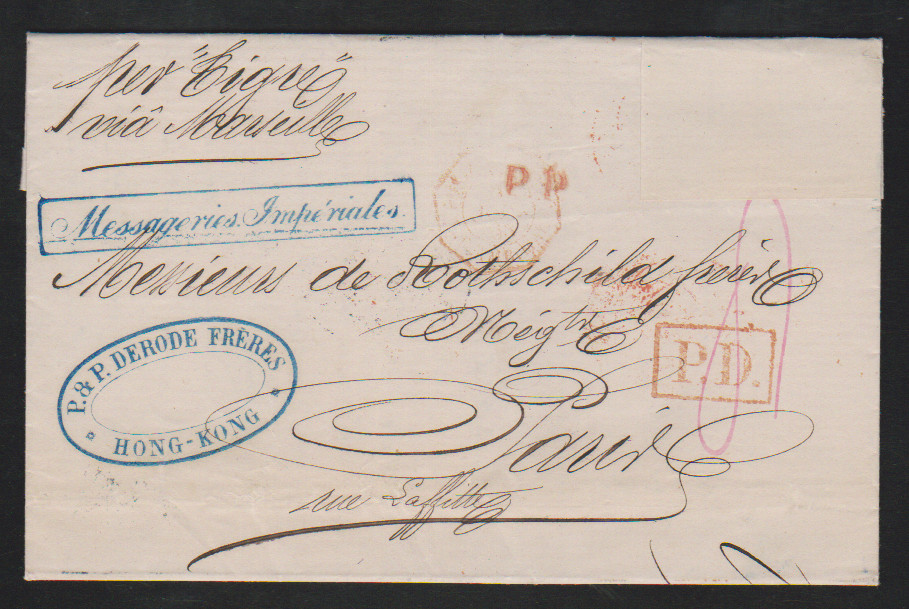 per "Tigre"
viâ Marseille
PP
Messageries Impériales.
Messieurs de Rothschild frères
Négts
P.D.
P. & P. DERODE FRÈRES
HONG-KONG
Paris
rue Laffitte